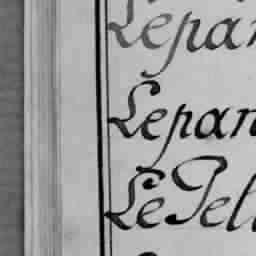 Lepan
Lepan
Le Pel